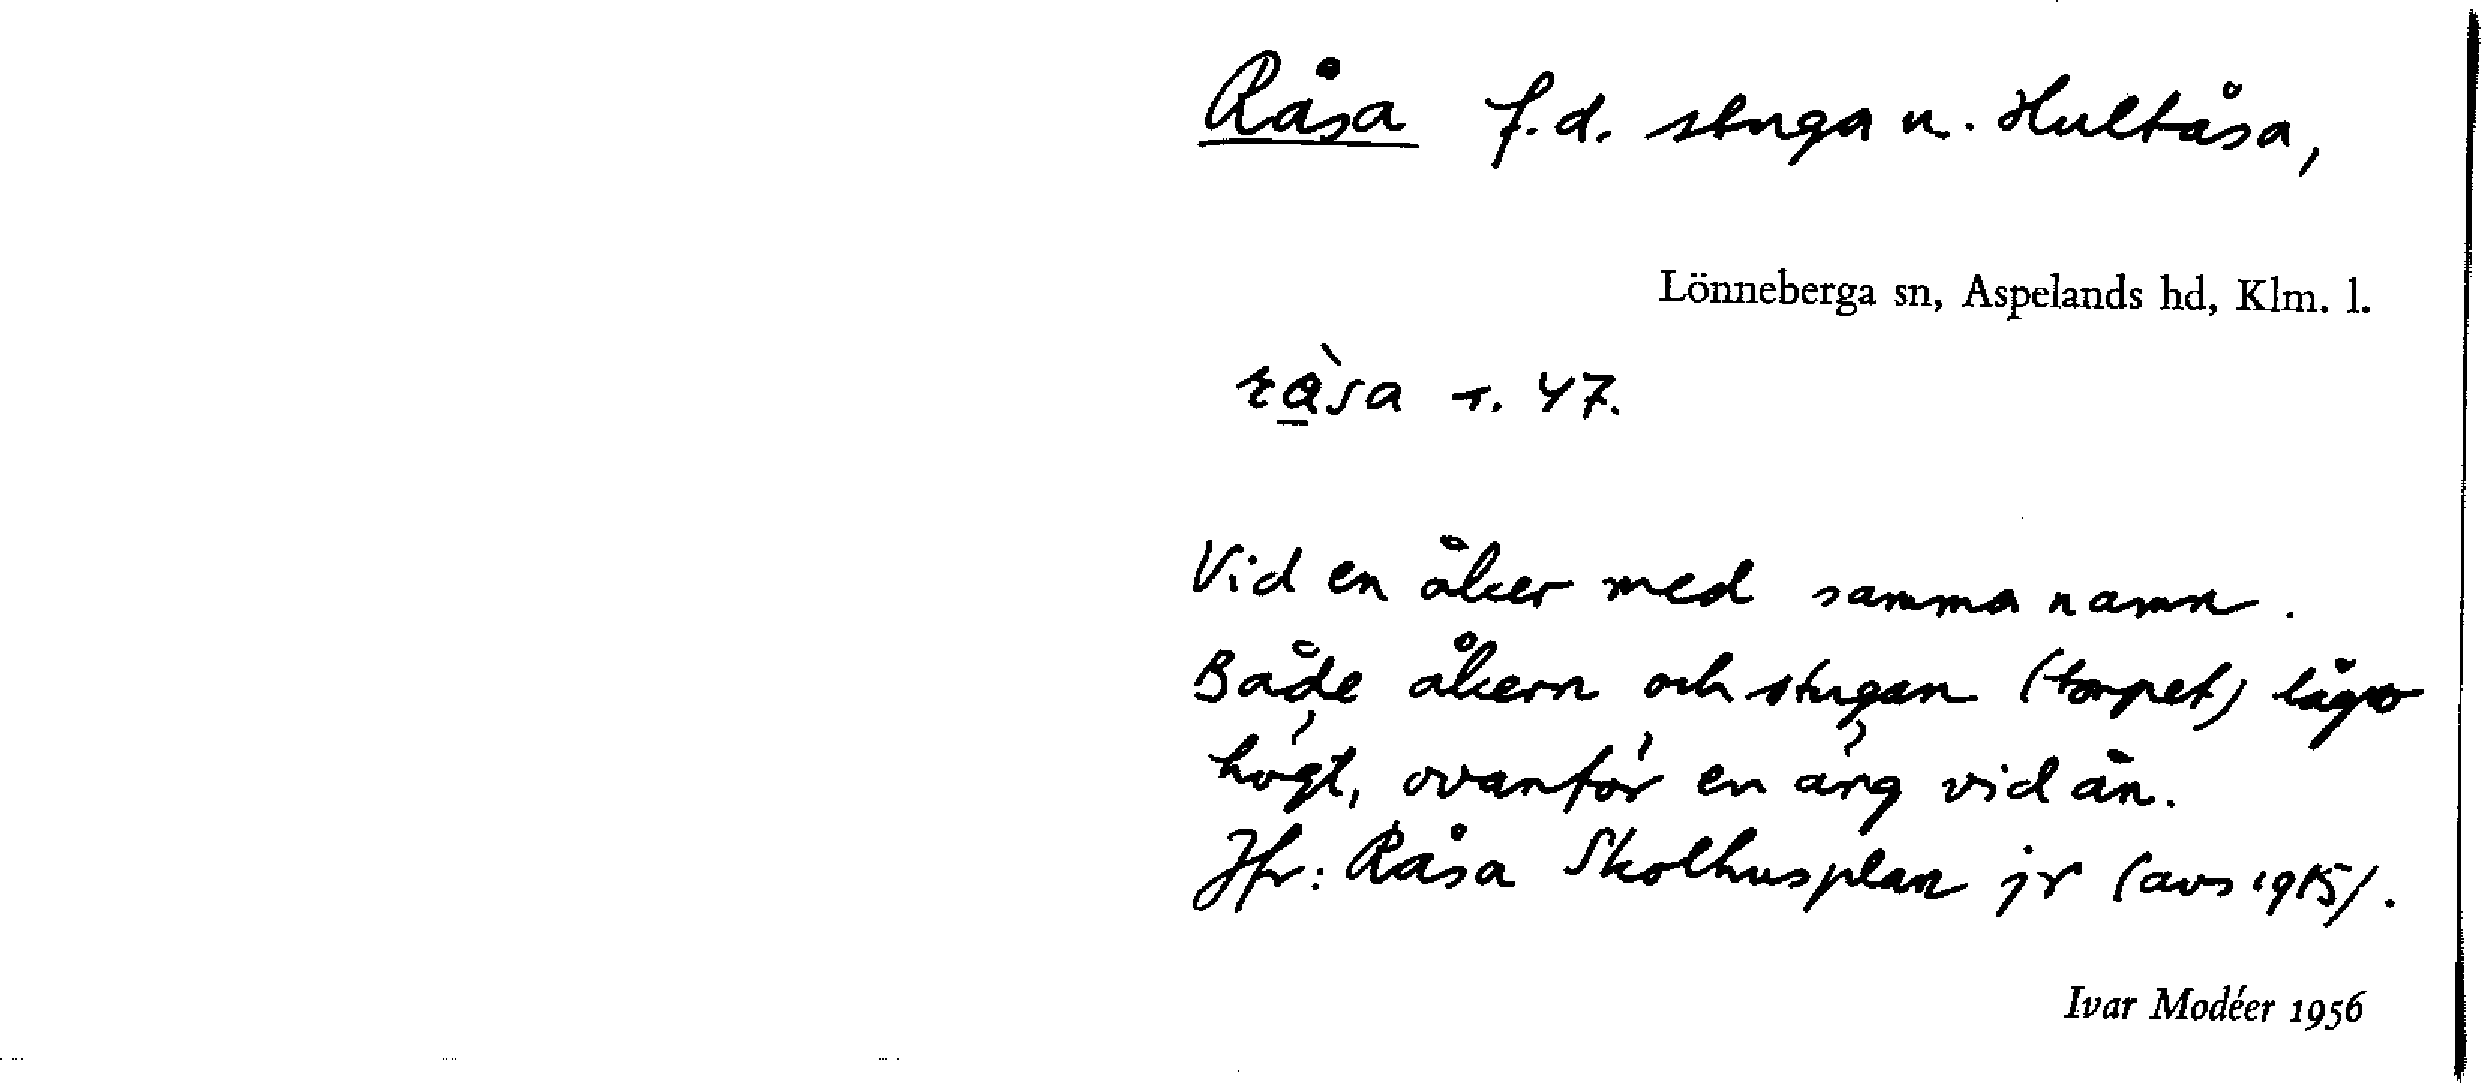 Råsa f.d. stuga u. Hultåsa,
Lönneberga sn, Aspelands hd, Klm. l.
rà̱sa т. 47.
Vid en åker med samma namn.
Både åkern och stugan (torpet) lågo
högt, ovanför en äng vid ån.
Jfr: Råsa Skolhusplan jr (avs 1915).
Ivar Modéer 1956